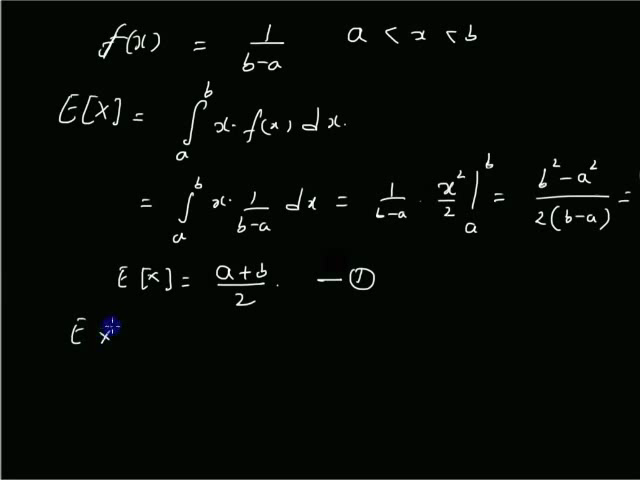 f(x) = 1/(b-a) a < x < b
E[X] = ∫_a^b x · f(x) dx.
= ∫_a^b x · 1/(b-a) dx = 1/(b-a) · x²/2 |_a^b = (b² - a²)/(2(b-a)) =
E[x] = (a+b)/2 . — ①
E x